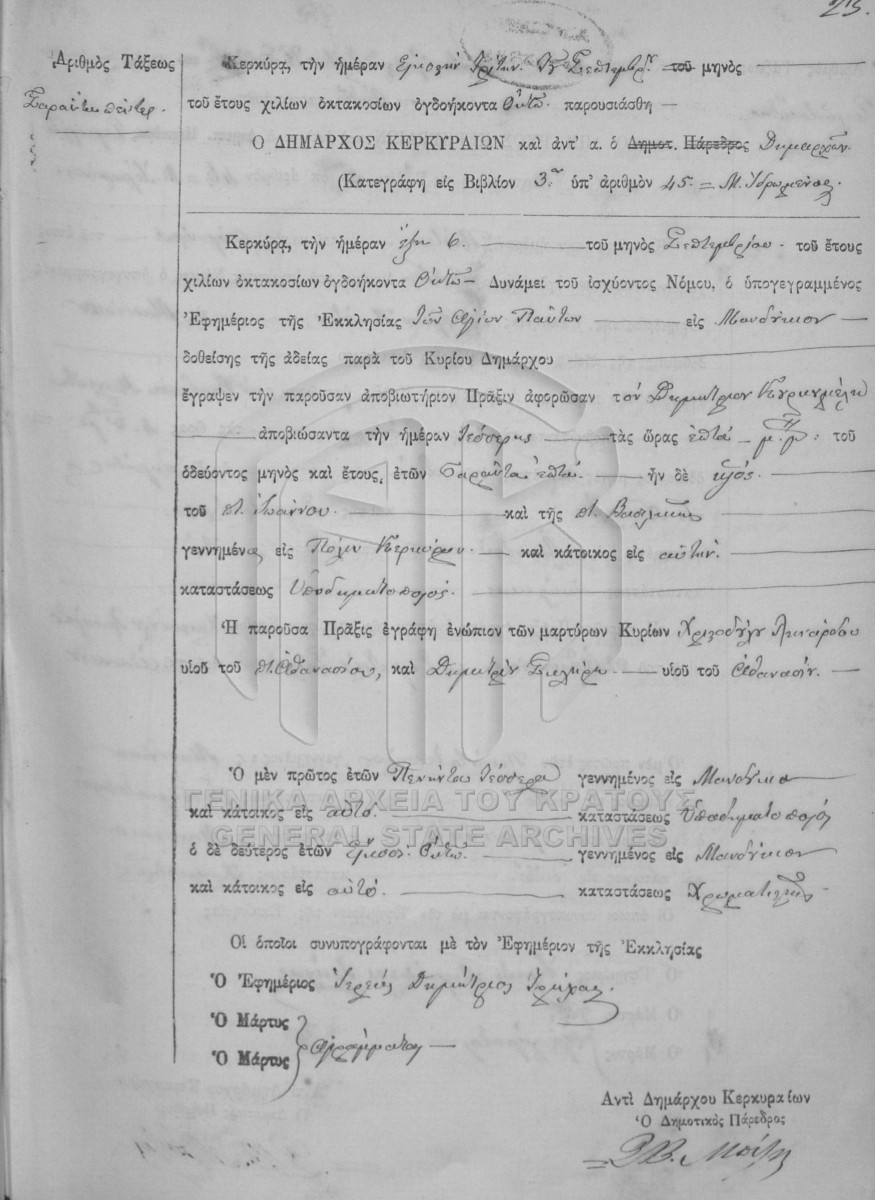 23.
Ἀριθμὸς Τάξεως
Σαράντα πέντε.
Κερκύρα, τὴν ἡμέραν Εἴκοσιν τρίτην 23 Σεπτεμβρ. τοῦ μηνὸς
τοῦ ἔτους χιλίων ὀκτακοσίων ὀγδοήκοντα Ὀκτὼ παρουσιάσθη
Ο ΔΗΜΑΡΧΟΣ ΚΕΡΚΥΡΑΙΩΝ καὶ ἀντ' α. ὁ Δημοτ. Πάρεδρος Δημαρχῶν
(Κατεγράφη εἰς Βιβλίον 3ον ὑπ' ἀριθμὸν 45 = Μ.
Κερκύρα, τὴν ἡμέραν ἕξη 6. τοῦ μηνὸς Σεπτεμβρίου τοῦ ἔτους
χιλίων ὀκτακοσίων ὀγδοήκοντα Ὀκτὼ Δυνάμει τοῦ ἰσχύοντος Νόμου, ὁ ὑπογεγραμμένος
Ἐφημέριος τῆς Ἐκκλησίας Τῶν Ἁγίων Πάντων εἰς Μανδύκιον
δοθείσης τῆς ἀδείας παρὰ τοῦ Κυρίου Δημάρχου
ἔγραψεν τὴν παροῦσαν ἀποβιωτήριον Πρᾶξιν ἀφορῶσαν τὸν Δημήτριον
ἀποβιώσαντα τὴν ἡμέραν τέσσερης τὰς ὥρας ἑπτά μ.μ. τοῦ
ὁδεύοντος μηνὸς καὶ ἔτους, ἐτῶν Σαράντα ἑπτά. ἦν δὲ υἱός.
τοῦ πτ. Ἰωάννου. καὶ τῆς πτ. Βασιλικῆς
γεννημένος εἰς Πόλιν Κερκύρας καὶ κάτοικος εἰς αὐτήν.
καταστάσεως Ὑποδηματοποιός.
Ἡ παροῦσα Πρᾶξις ἐγράφη ἐνώπιον τῶν μαρτύρων Κυρίων Χριστοδούλου
υἱοῦ τοῦ πτ. Ἀθανασίου, καὶ Δημητρίου υἱοῦ τοῦ Ἀθανασίου.
Ὁ μὲν πρῶτος ἐτῶν Πενήντα τέσσερα γεννημένος εἰς Μανδύκιον
καὶ κάτοικος εἰς αὐτό. καταστάσεως Ὑποδηματοποιός
ὁ δὲ δεύτερος ἐτῶν Εἴκοσι Ὀκτώ. γεννημένος εἰς Μανδύκιον
καὶ κάτοικος εἰς αὐτό. καταστάσεως
Οἱ ὁποῖοι συνυπογράφονται μὲ τὸν Ἐφημέριον τῆς Ἐκκλησίας
Ὁ Ἐφημέριος Ἱερεύς Δημήτριος
Ὁ Μάρτυς
Ὁ Μάρτυς
Ἀγράμματοι
Ἀντὶ Δημάρχου Κερκυραίων
Ὁ Δημοτικὸς Πάρεδρος
ΓΕΝΙΚΑ ΑΡΧΕΙΑ ΤΟΥ ΚΡΑΤΟΥΣ
GENERAL STATE ARCHIVES